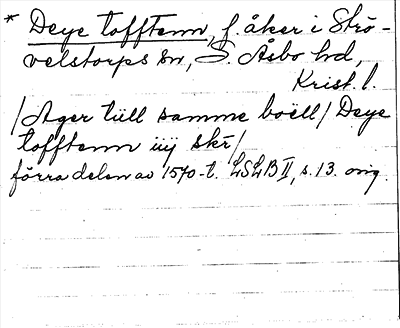 * Deye tofftenn, f. åker i Strö-
velstorps sn, S. Åsbo hd,
Krist. l.
/Ager till samme boell/ Deye
tofftenn iiij skr/
förra delen av 1570-t. LSLB II, s. 13. orig.